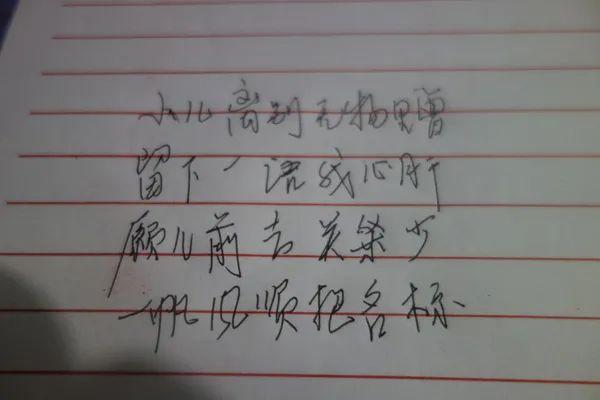 小儿离别无物赠
留下一语我心肝
愿儿前去关条少
一帆风顺把名标